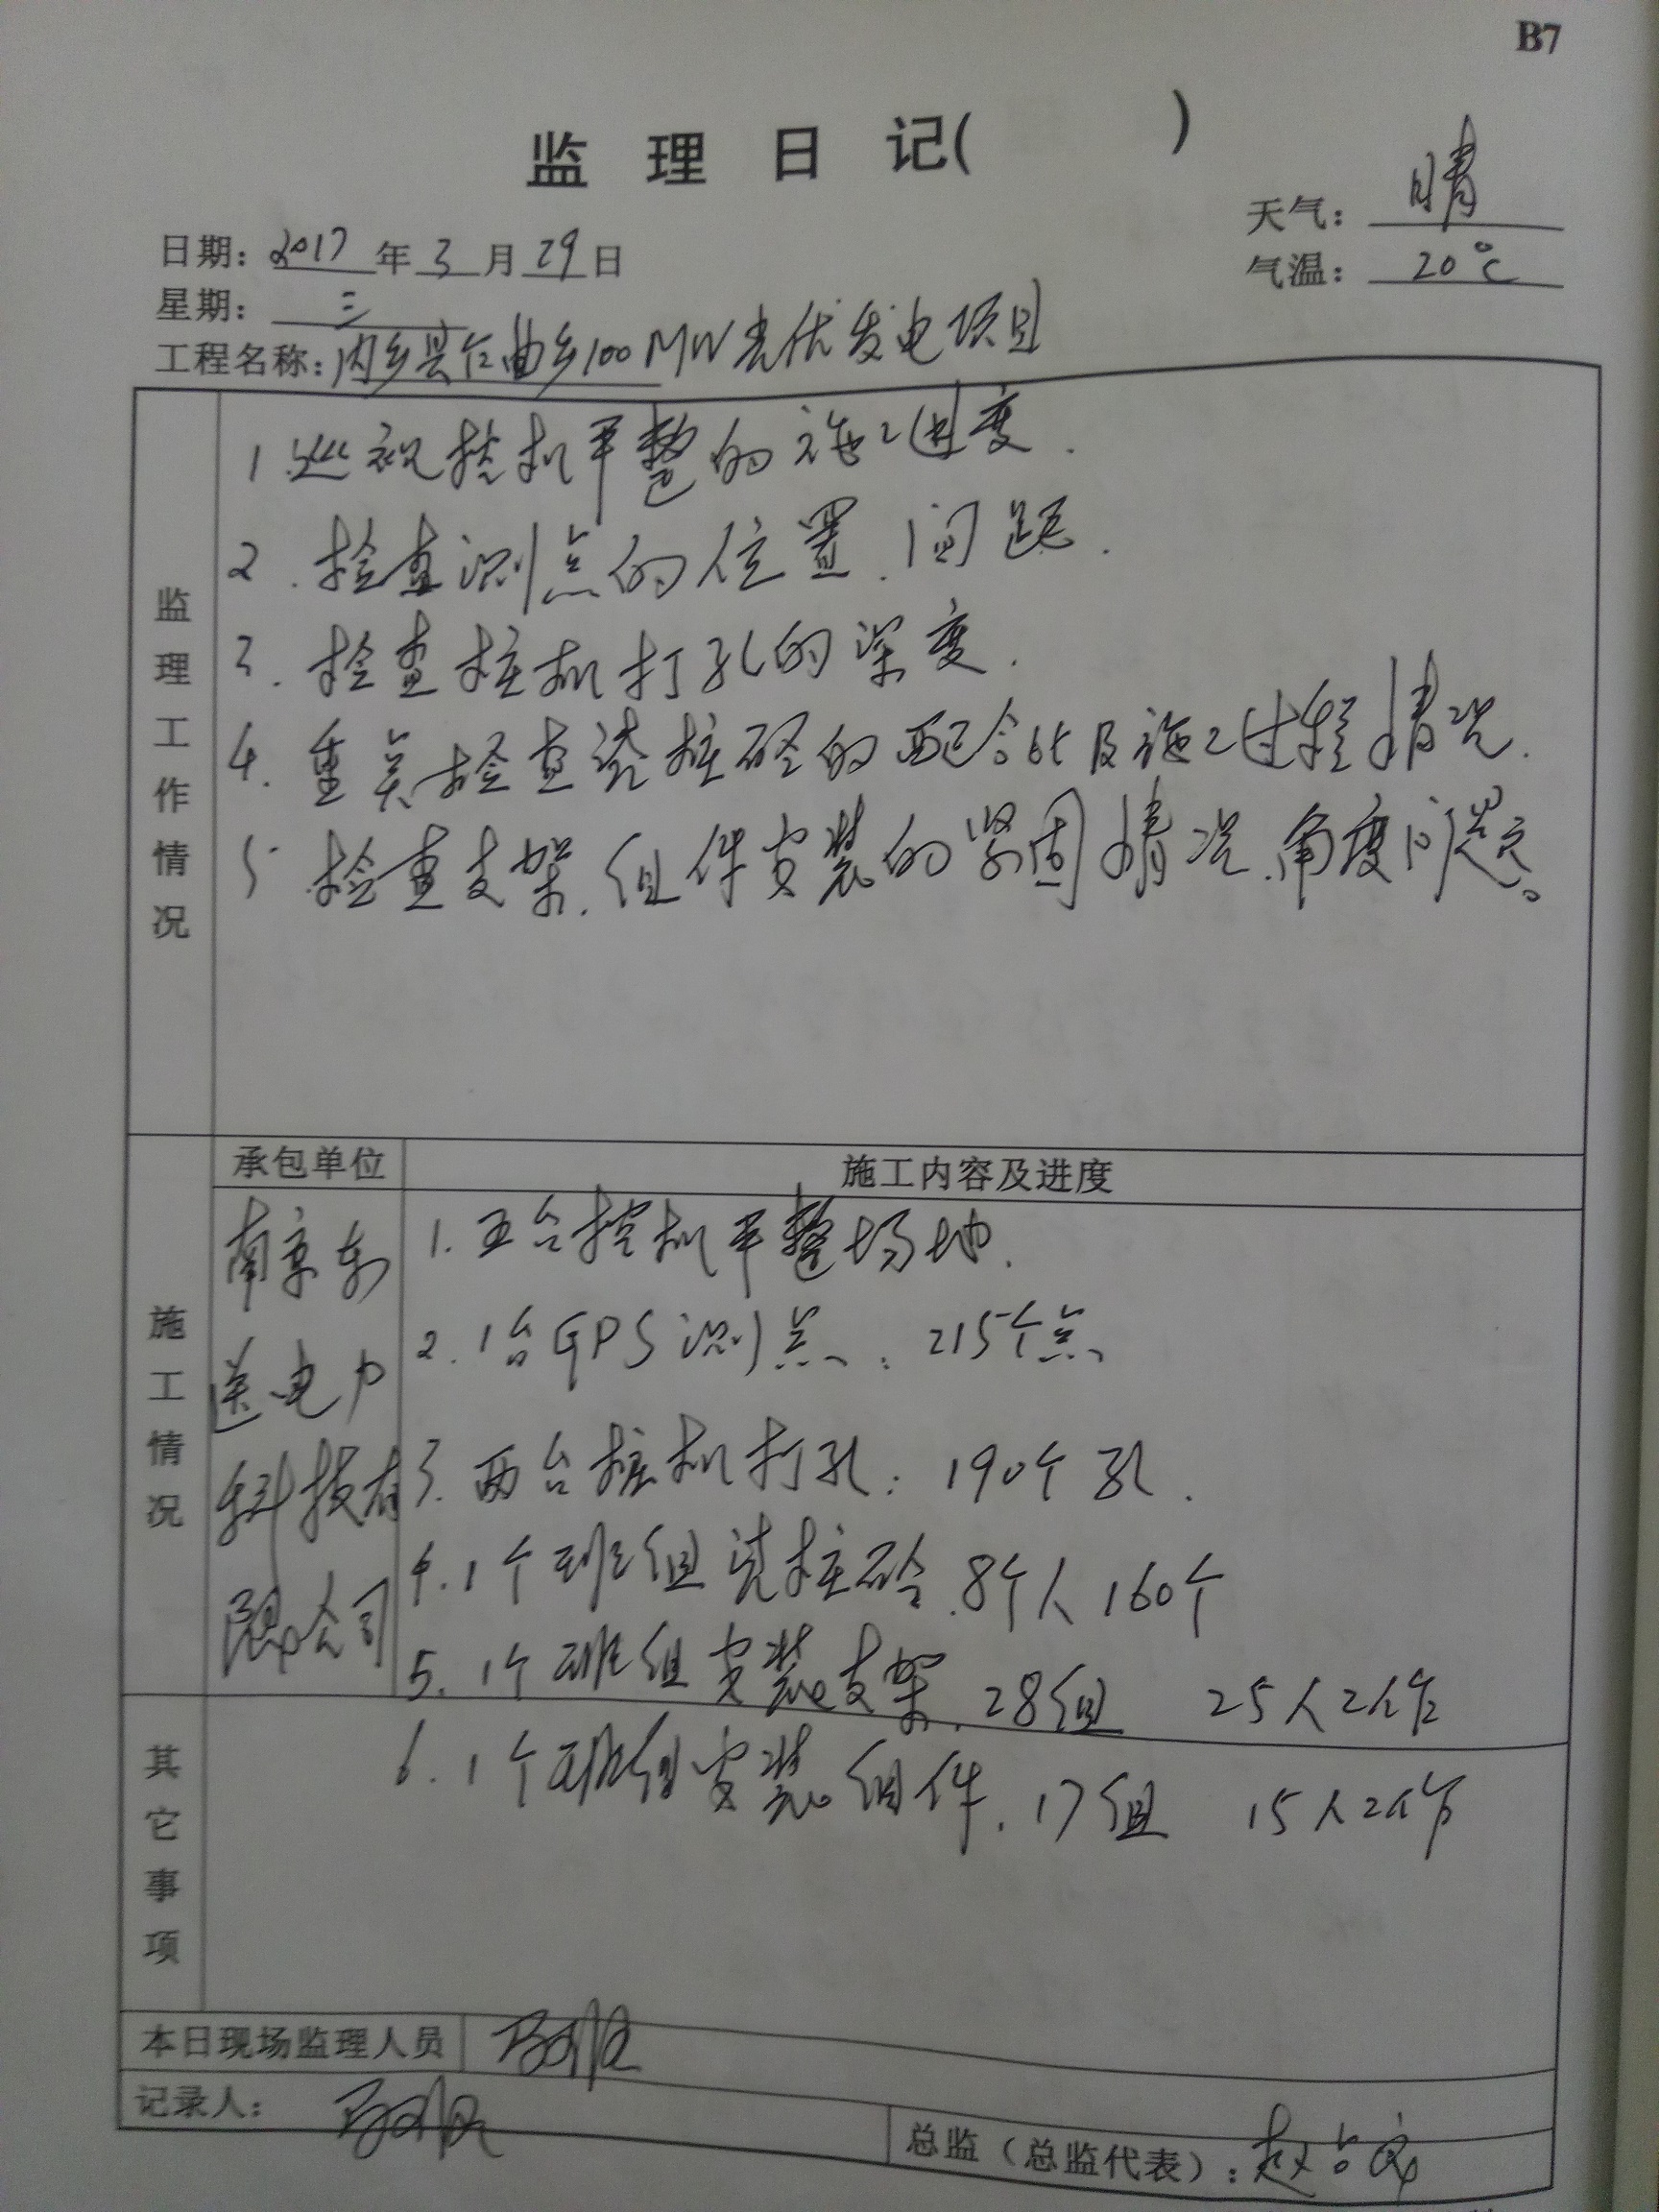 B7
监 理 日 记( )
天气: 晴
日期: 2017 年 3 月 29 日
气温: 20℃
星期: 三
工程名称: 内乡县乍曲乡100MW光伏发电项目
监理工作情况
1.巡视挖机平整的施工进度.
2.检查测点的位置、间距.
3.检查桩机打孔的深度.
4.重关检查浇桩砼的配合比及施工过程情况.
5 检查支架、组件安装的紧固情况、角度问题。
承包单位
施工内容及进度
施工情况
南京东
送电力
科技有
限公司
1.五台挖机平整场地.
2.1台GPS测点: 215个点
3.两台桩机打孔: 190个孔.
4.1个班组浇桩砼.8个人160个
5.1个班组安装支架.28组 25人工作
其它事项
6.1个班组安装组件.17组 15人工作
本日现场监理人员
记录人:
总监(总监代表): 赵